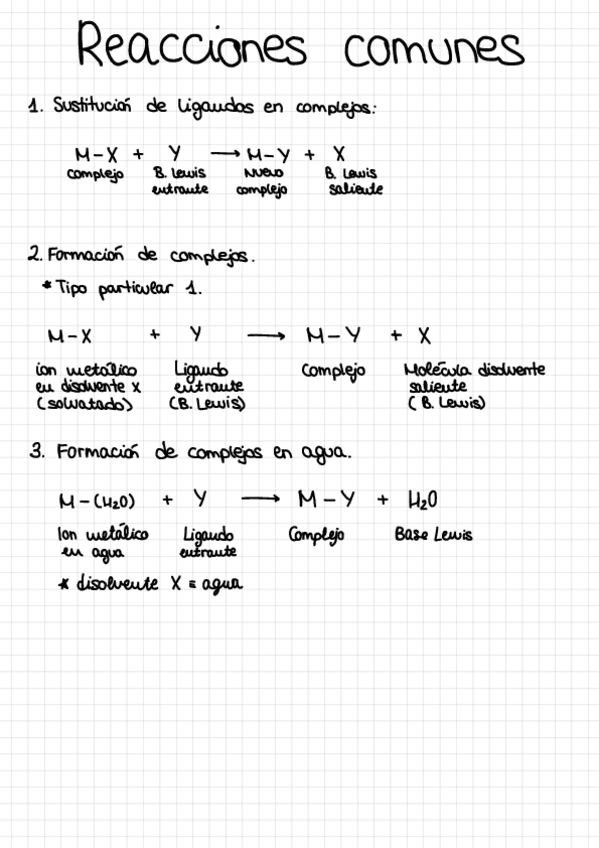 Reacciones comunes
1. Sustitución de Ligandos en complejos:
M-X + Y → M-Y + X
complejo B. Lewis Nuevo B. Lewis
entrante complejo saliente
2. Formación de complejos.
* Tipo particular 1.
M-X + Y → M-Y + X
ion metálico Ligando Complejo Molécula disolvente
en disolvente X entrante saliente
(solvatado) (B. Lewis) (B. Lewis)
3. Formación de complejos en agua.
M-(H₂O) + Y → M-Y + H₂O
Ion metálico Ligando Complejo Base Lewis
en agua entrante
* disolvente X = agua